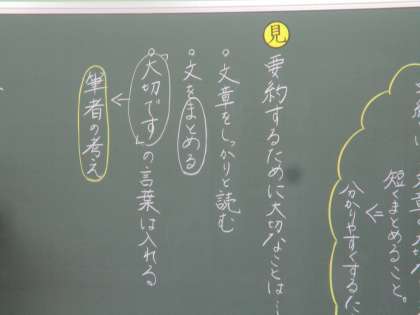 短くまとめること。
⇐
分かりやすくするた
見
要約するために大切なことは…
。文章をしっかりと読む
。文をまとめる
。「大切です」の言葉は入れる
←
筆者の考え